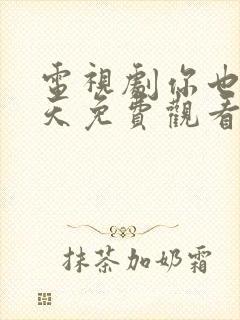 電視劇你也
天免費觀看
抹茶加奶霜